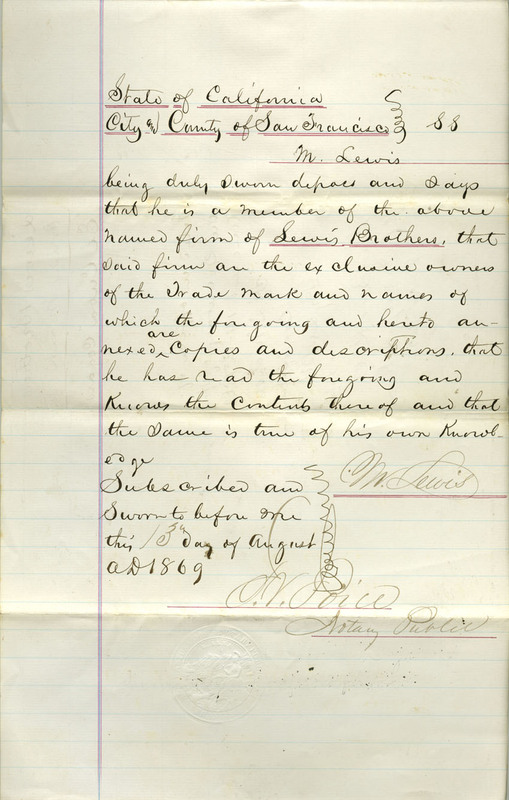 State of California
City and County of San Francisco } SS
M. Lewis
being duly sworn deposes and says
that he is a member of the above
named firm of Lewis Brothers, that
said firm are the exclusive owners
of the Trade Mark and names of
which the foregoing and hereto an-
nexed, are Copies and descriptions, that
he has read the foregoing and
Knows the Contents thereof and that
the same is true of his own Knowl-
edge
M. Lewis
Subscribed and
Sworn to before me
this 13th day of August
AD 1869
Notary Public